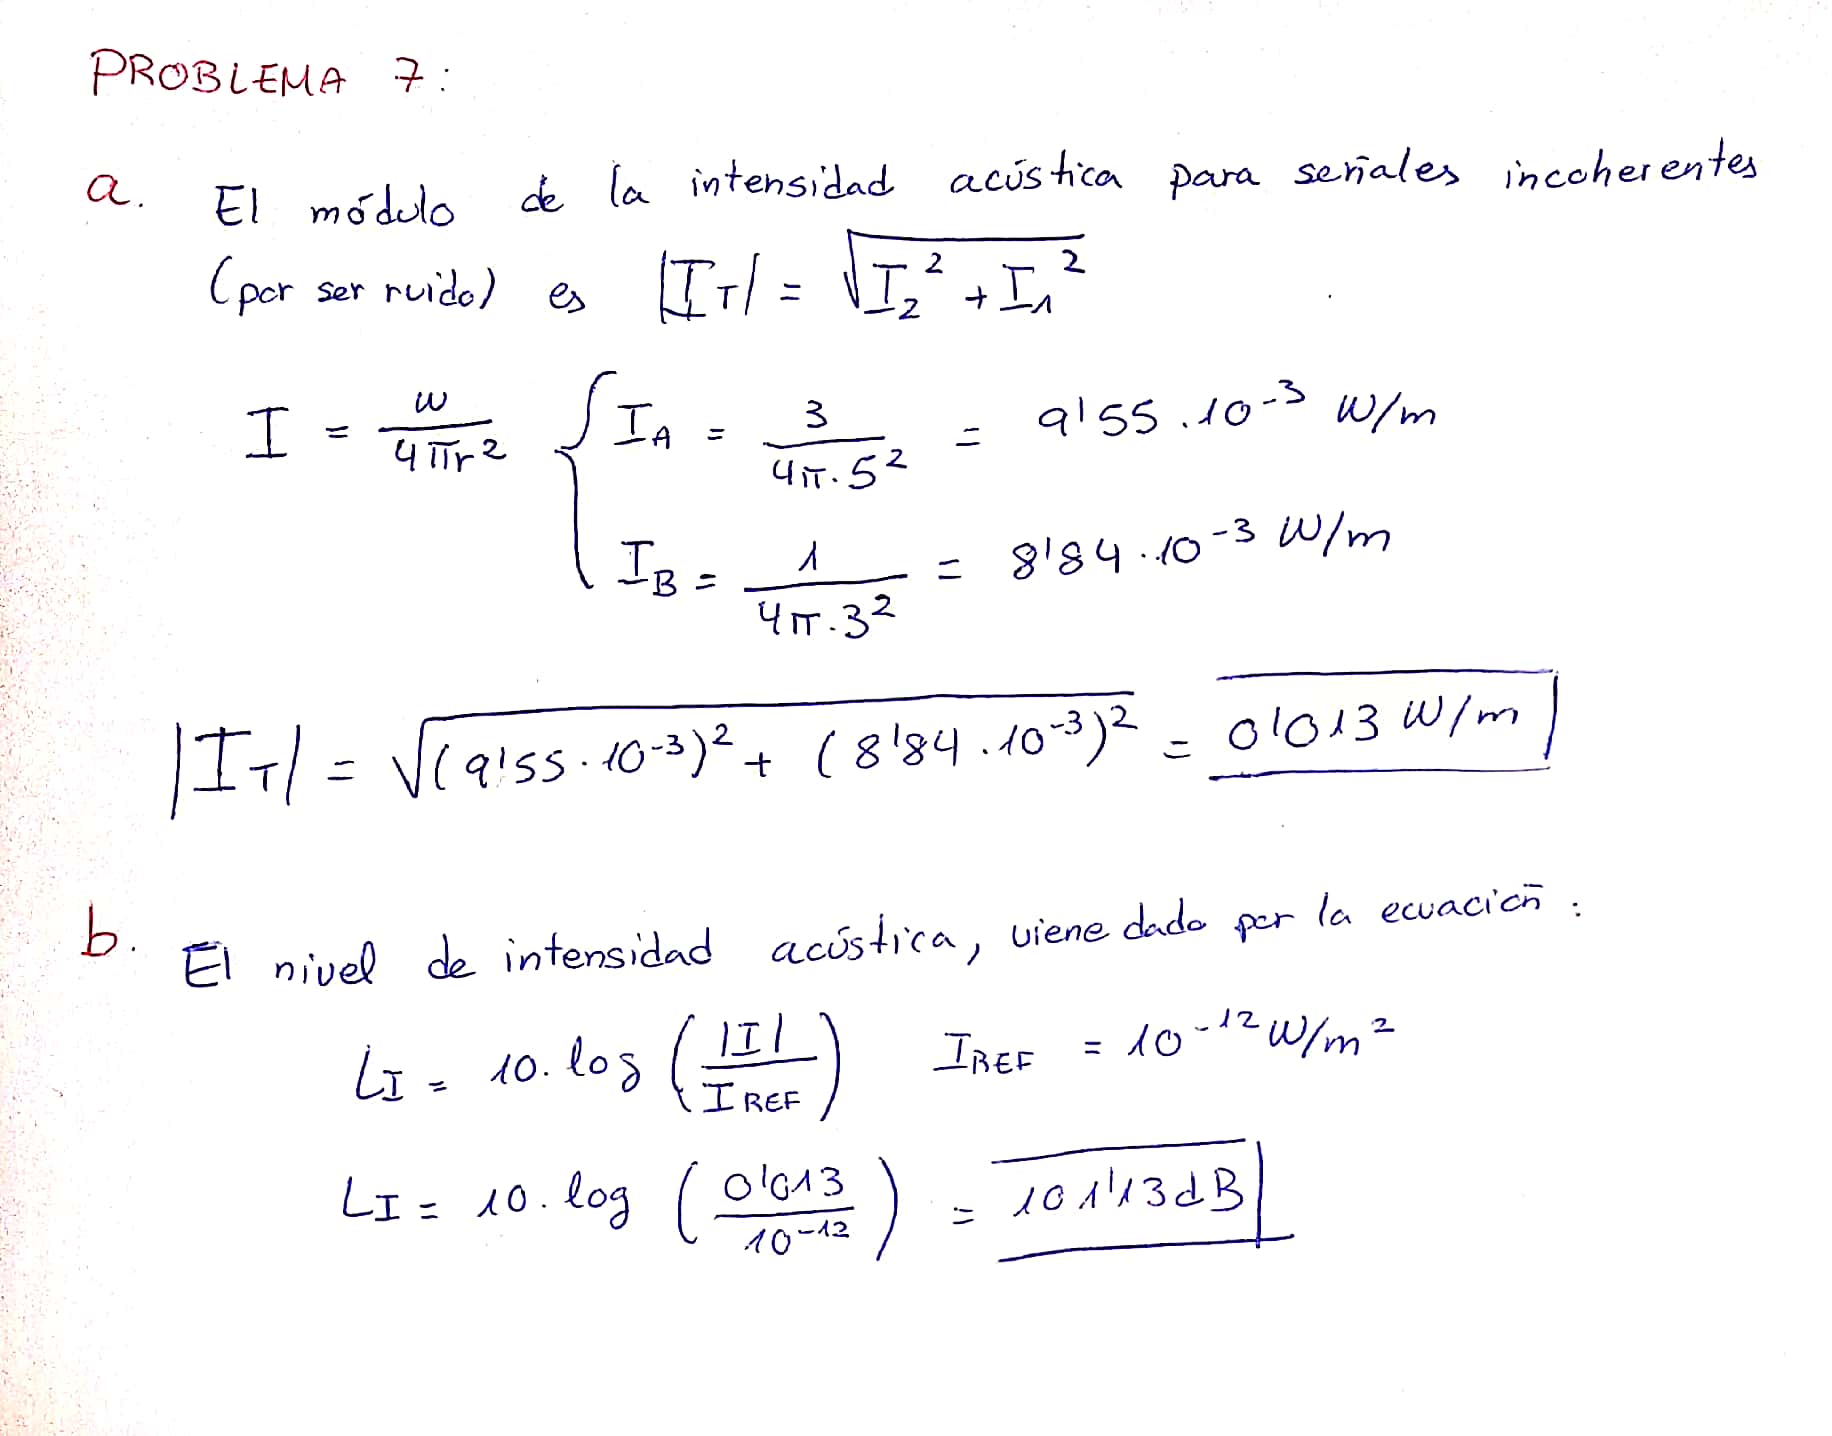 PROBLEMA 7:
a. El módulo de la intensidad acústica para señales incoherentes
(por ser ruido) es |I_T| = √(I₂² + I₁²)
I = w / 4πr² { I_A = 3 / 4π·5² = 9'55·10⁻³ W/m
I_B = 1 / 4π·3² = 8'84·10⁻³ W/m
|I_T| = √((9'55·10⁻³)² + (8'84·10⁻³)²) = 0'013 W/m
b. El nivel de intensidad acústica, viene dado por la ecuación:
L_I = 10·log (|I| / I_REF) I_REF = 10⁻¹² W/m²
L_I = 10·log (0'013 / 10⁻¹²) = 101'13 dB